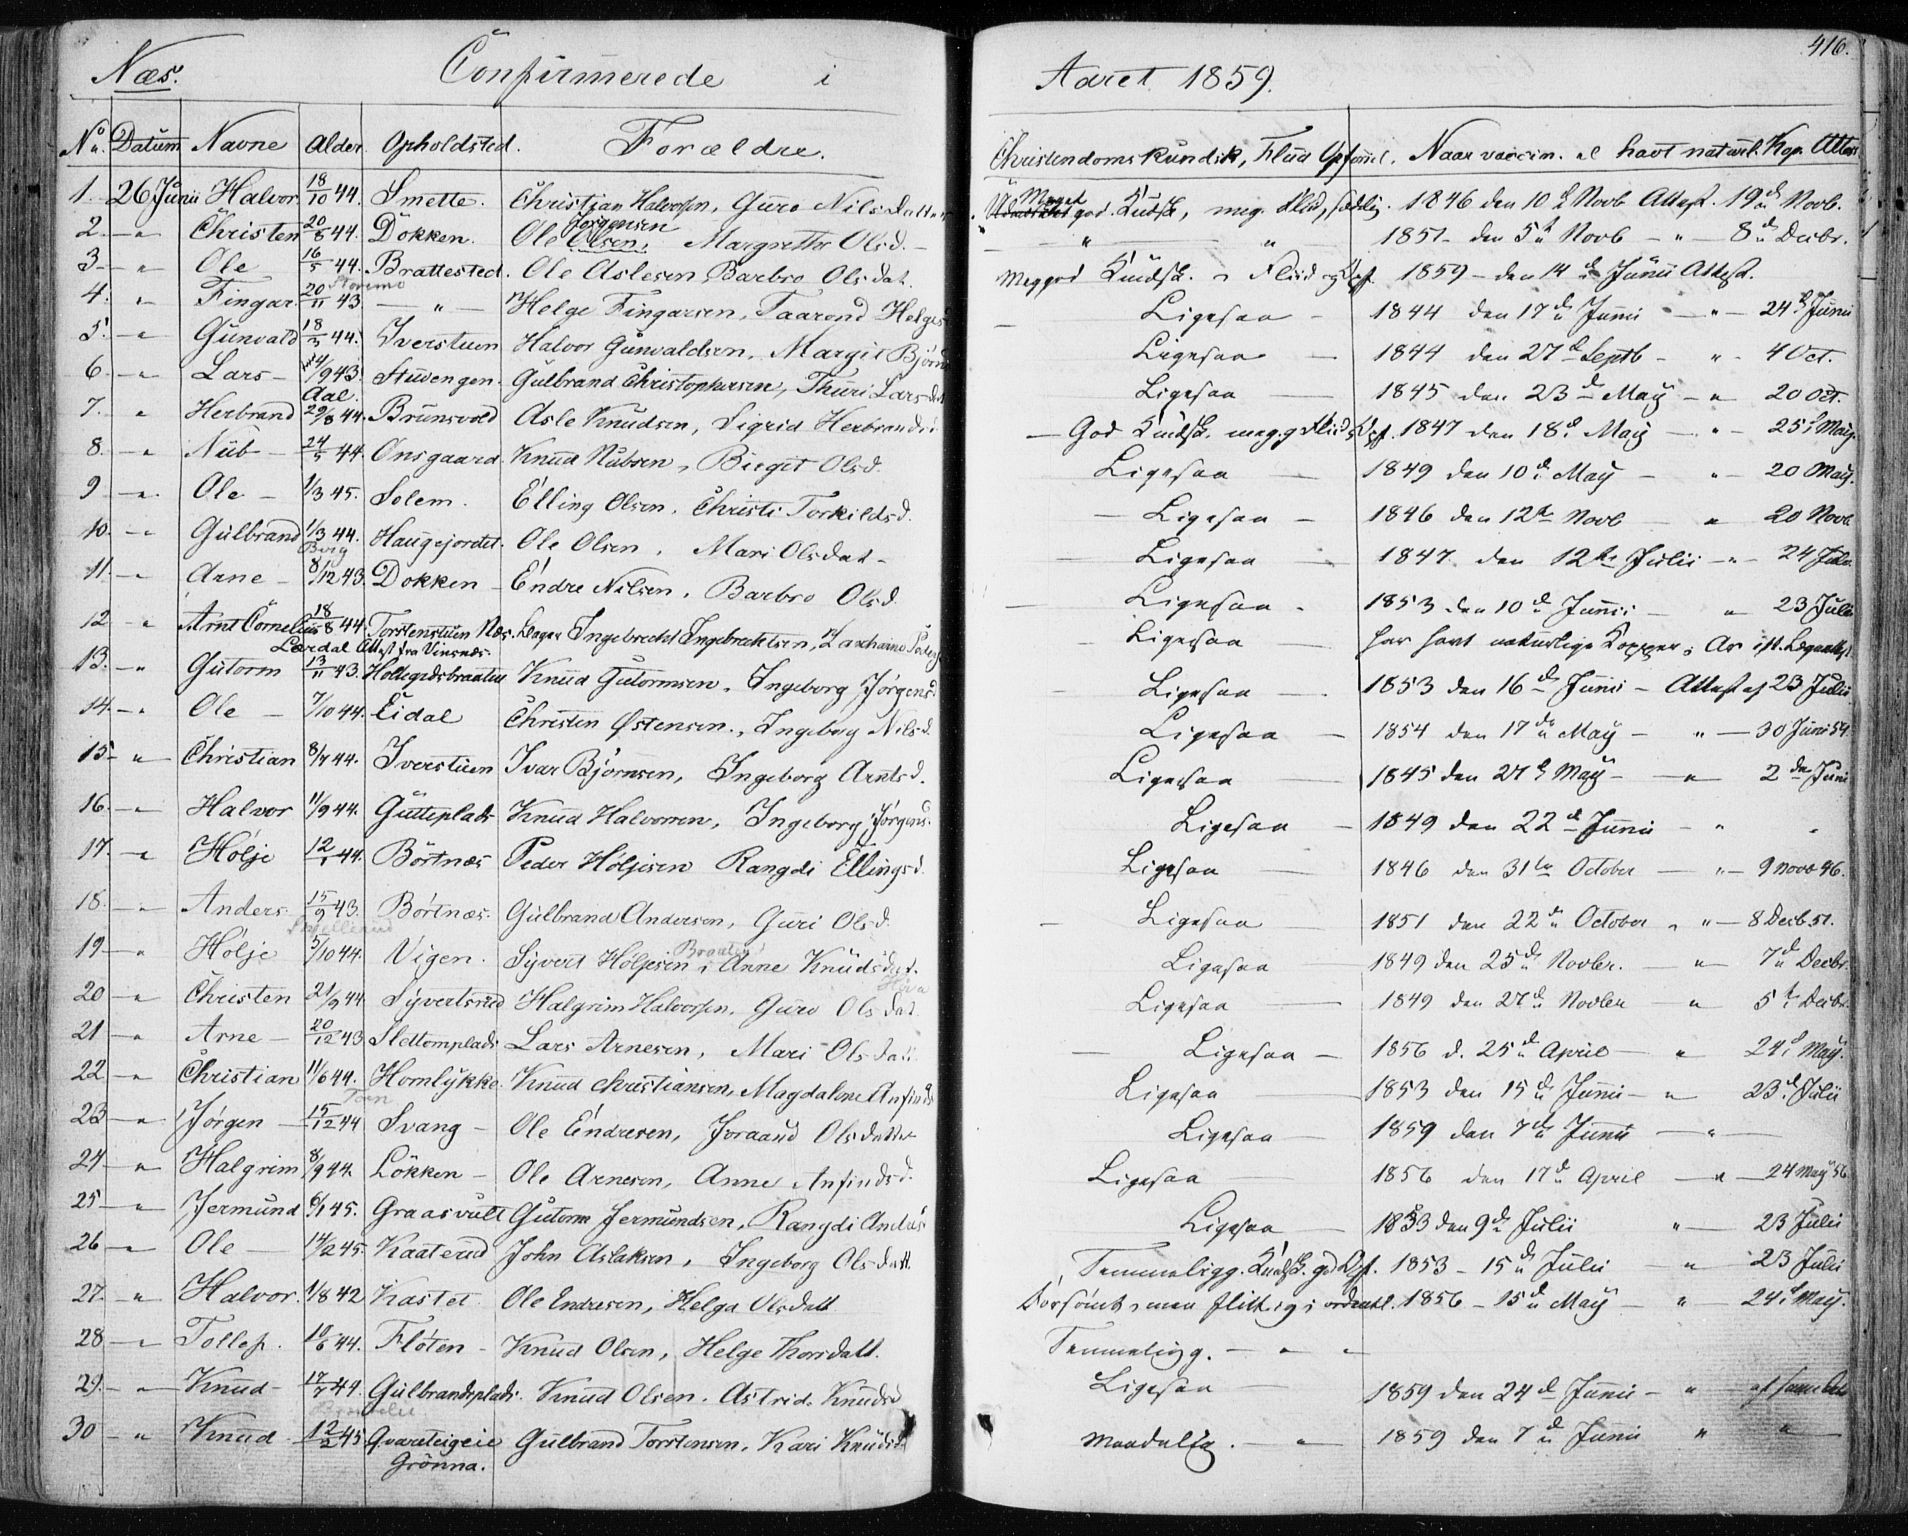 416.
Næs. Confirmerede i Aaret 1859.
No. Datum Navne Alder. Opholdsted. Forældre. Christendomskundsk, Flid Opførsel. Naar vaccin. el havt naturl. Kop. Attest
1. 26 Junii Halvor 18/10 44. Smette. Christian Halvorsen, Guro Nilsdatter Meget god Kudsk, meg. Flid, sædelig. 1846 den 10d Novb Attest. 19d Novb.
2. - " Christen 20/8 44. Dokken. Ole Olsen, Jørgensen Margrethe Olsd. - " " 1851 den 5t Novb - " - 8d Decbr.
3 - " Ole 16/5 44. Brattested. Ole Aslesen, Barbro Olsdat. Meg god Kundsk. Flid og Opf. 1859 - den 14d Junii Attest.
4. " Fingar 20/11 43 - " - Helge Fingarsen, Taarond Helges Ligesaa - 1844 den 17d Junii - " - 24d Junii
5. - " Gunvald 18/5 44. Iverstuen Halvor Gunvaldsen, Margit Bjørnd Ligesaa - 1844 den 27d Septb - " - 4 Oct.
6 - " Lars - 14/9 43. Stuvengen. Gulbrand Christophersen, Thuri Larsdat Ligesaa - 1845 den 23d May - " 20 Oct.
Aal.
7. " Herbrand 29/8 44. Brunsvold Asle Knudsen, Sigrid Herbrandsd - God Kudsk. meg. g. Flid & Opf. 1847 den 18d May - " - 25d May.
8. - " Nub - 24/5 44. Onsgaard. Knud Nubsen, Birgit Olsd. Ligesaa - 1849 den 10d May - " - 20 May.
9 - " Ole - 1/3 45. Solem. Elling Olsen, Christi Torkildsd. - Ligesaa - 1846 den 12te Novb " 20 Novb
10. - " Gulbrand 1/3 44. Haugejordet. Ole Olsen, Mari Olsdat - - Ligesaa - 1847. den 12te Julii - " - 24 Julii
Berg
11. - " Arne - 8/12 43. Dokken - Endre Nilsen, Barbro Olsd. - Ligesaa - 1853 den 10d Junii - " 23 Julii
12 - " Arnt Cornelius 18/8 44. Torstenstuen Næs. Ingebrecht Ingebrechtsen, - Ligesaa - har havt naturlige Kopper,
Lærdal Attest fra Vinsnæs.
13. - " Gutorm 13/11 43. Knud Gutormsen, Ingeborg Jørgensd. - Ligesaa - 1853 den 16d Junii - Attest af 23 Julii
14. - " Ole - 7/10 44. Eidal Christen Østensen, Ingeborg Nilsd. Ligesaa - 1854 den 17d May - " - 30 Juni 54.
15 - " Christian 8/7 44. Iverstuen Ivar Bjørnsen, Ingeborg Arntsd. Ligesaa - 1845 den 27d May - " 2den Juni
16. - " Halvor 11/9 44. Gutteplads Knud Halvorsen, Ingeborg Jørgens. Ligesaa - 1849 den 22d Junii - "
17. - " Holje 12/1 44. Börtnæs Peder Holjesen Rangdi Ellingsd. Ligesaa - 1846 den 31te October - " - 9 Novb 46.
18. - " Anders. 15/9 43. Börtnæs. Gulbrand Andersen, Guri Olsd. - Ligesaa - 1851 den 22d October " " - 8 Decb. 51.
19 - " Holje 5/10 44. Vigen. Syvert Holjesen, Braaten Anne Knudsdat. Ligesaa 1849 den 25d Novbr. - " - 7d Decbr.
20 - " Christen 21/9 44 Syvertsrud Halgrim Halvorsen, Guro Olsdat. Ligesaa - 1849 den 27d Novber " 5t Decbr.
21 - " Arne - 20/12 43 Slettomplads Lars Arnesen, Mari Olsdatt. - Ligesaa - 1856 d. 25d April - " 24d May.
22 - " Christian 11/6 44. Homlykke Knud Christiansen, Magdalene Anfinds Ligesaa - 1853 den 15d Junii - " 23d Julii
23 - " Jørgen - 15/12 44 Svang - Ole Endresen, Joraand Olsdatter Ligesaa - 1859 den 7d Junii - " -
24 - " Halgrim 8/9 44. Lökken - Ole Arnesen, Anne Anfindsd. Ligesaa - 1856 den 17d April - " - 24 May 56
25 - " Jermund 6/1 45. Graasvult Gutorm Jermundsen, Rangdi Anders Ligesaa - 1853 den 9d Julii " - 23 Julii
26 - " Ole - 14/2 45. Kaaterud John Aslaksen, Ingeborg Olsdatt. Temmelig g. Kudsk. god Opf. 1853 - 15d Julii - " 23 Julii
27. - " Halvor. 1/8 42 Kastet Ole Endresen, Helga Olsdatt Forsömt, men flittig & ordentl. 1856 - 15d May - " - 24d May.
28 - " Tollef. 10/6 44. Flöten - Knud Olsen, Helge Thorsdatt. Temmelig g. - " -
29. - " Knud - 17/7 44 Gulbrandsplads. Knud Olsen. Astrid Knudsd Ligesaa - 1859 den 24d Junii - " af samme Dato
30 - " Knud 12/2 45 Gulbrand Torstensen, Kari Knudsd Maadelig. - " - 1859 den 7d Junii " - " -
Grönna.